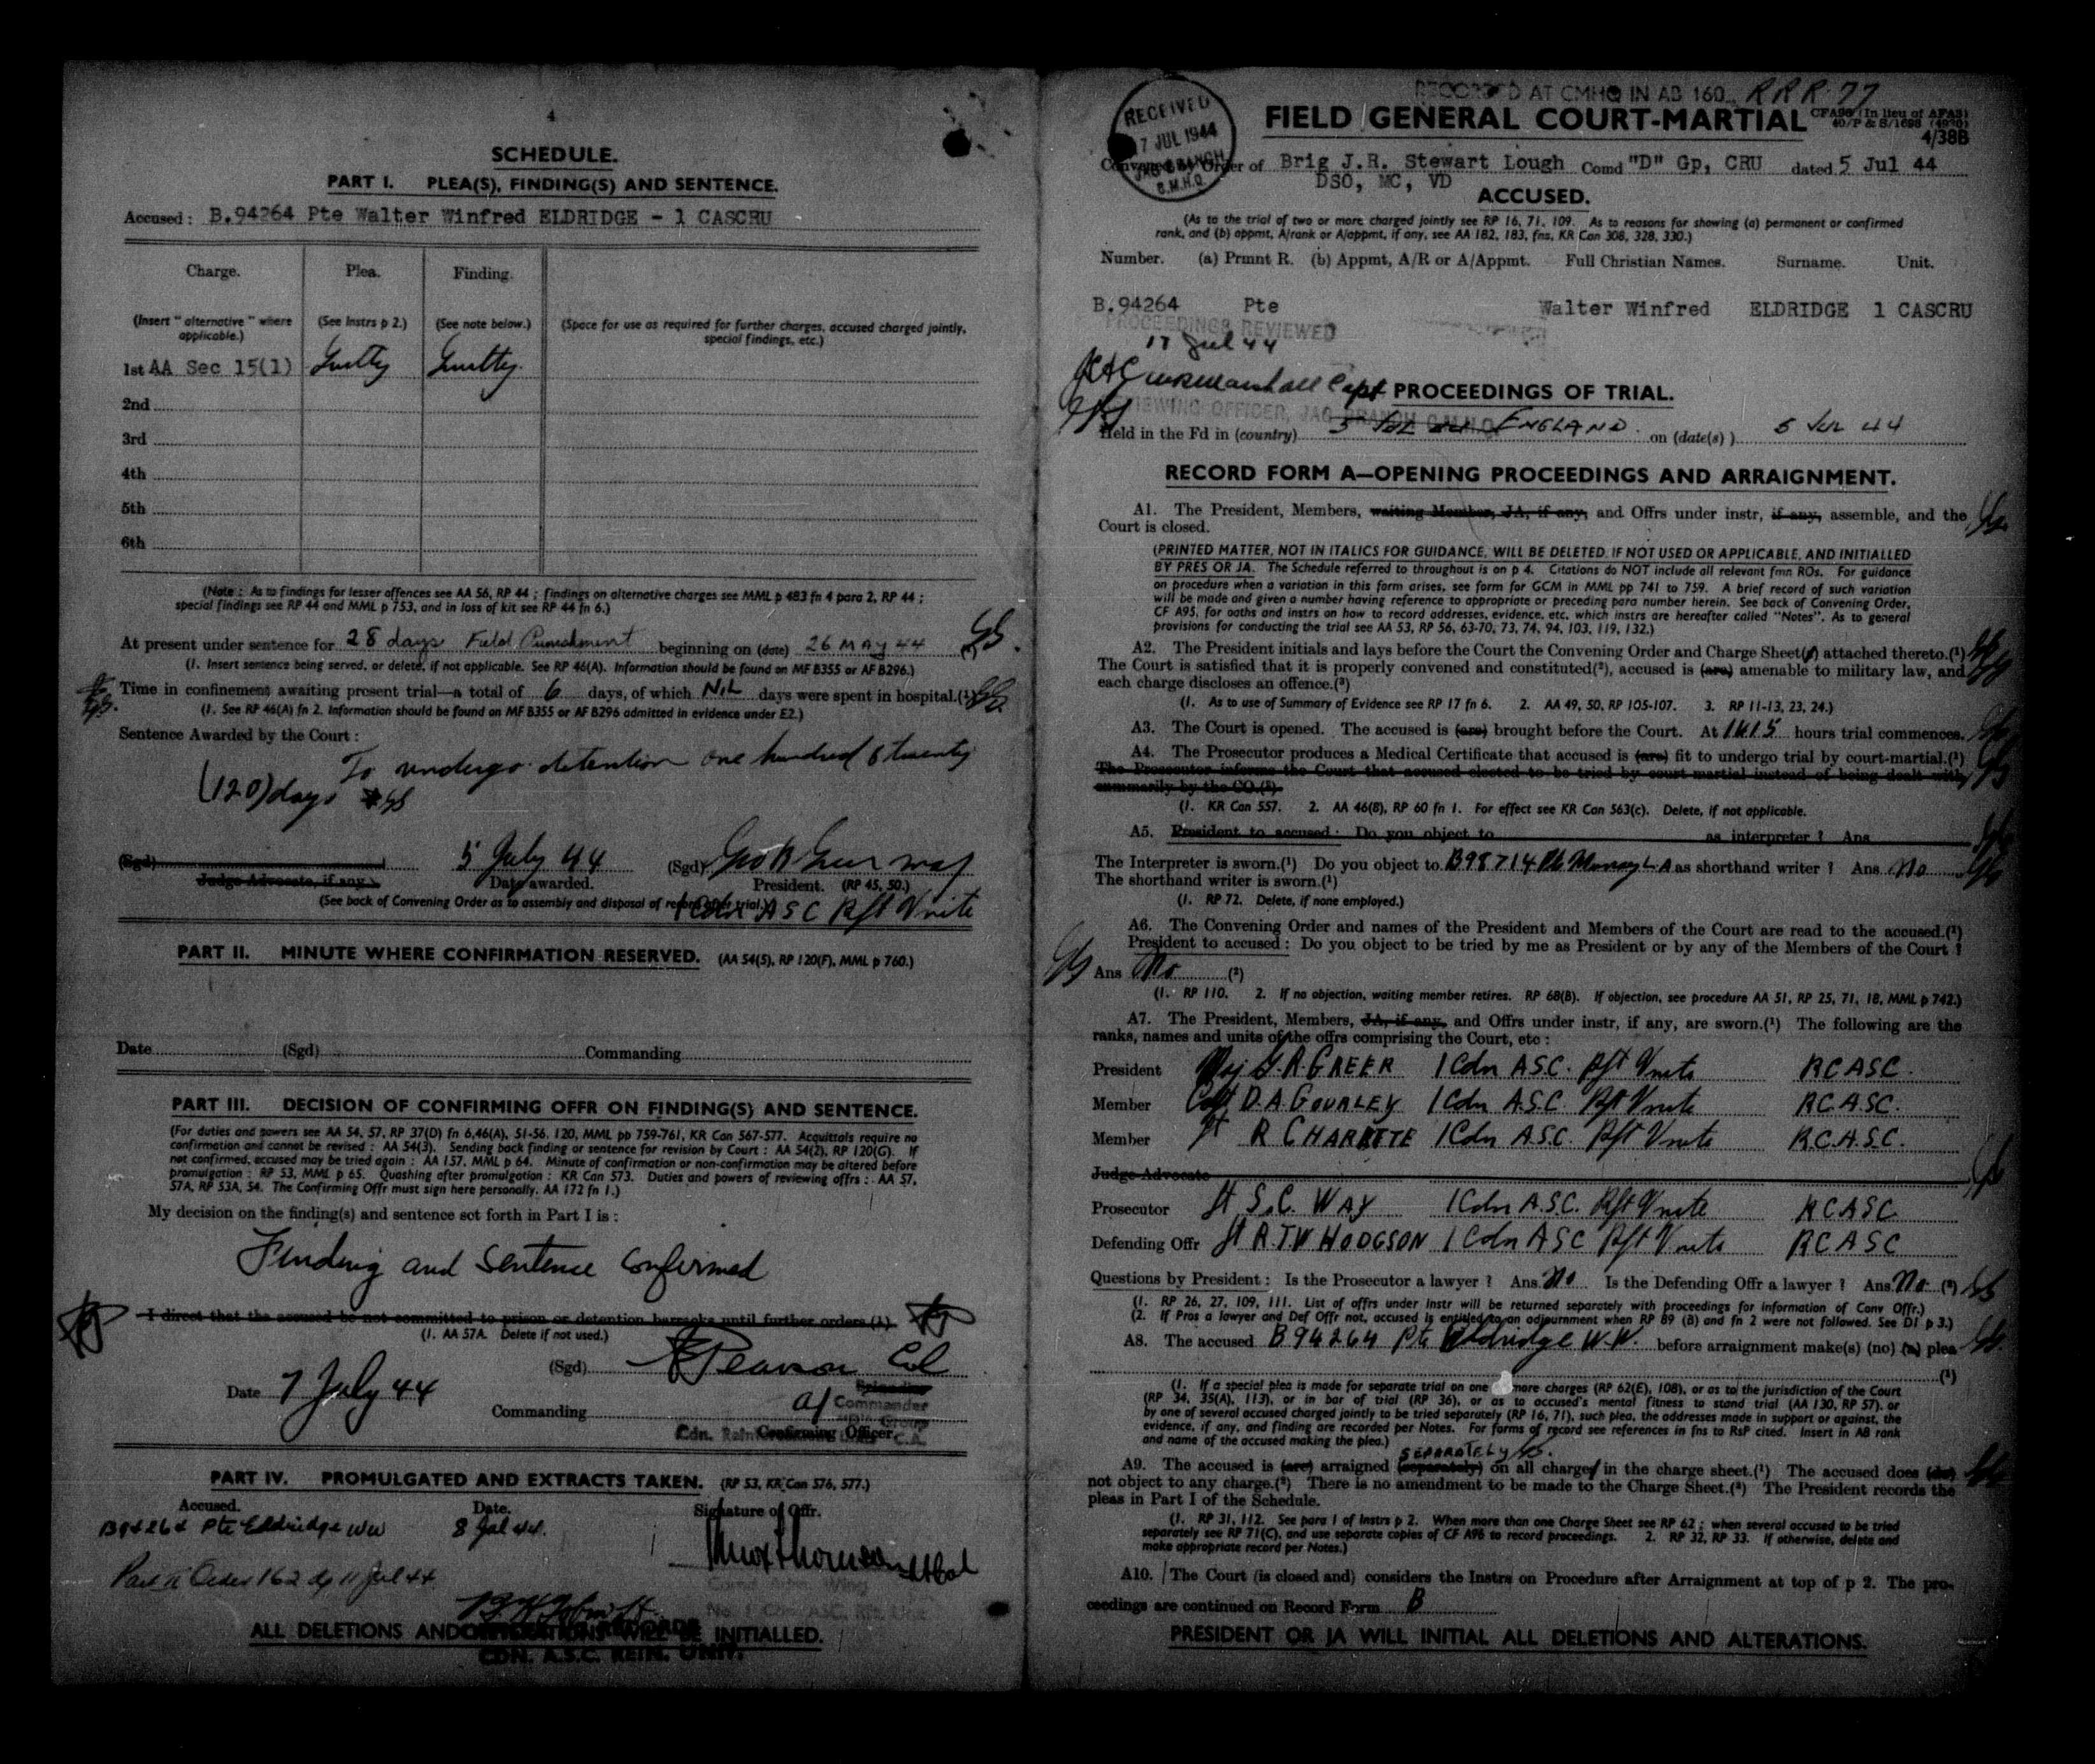 4
SCHEDULE.
PART I. PLEA(S), FINDING(S) AND SENTENCE.
Accused: B.94264 Pte Walter Winfred ELDRIDGE - 1 CASCRU
Charge. Plea. Finding.
(Insert "alternative" where applicable.) (See Instrs p 2.) (See note below.) (Space for use as required for further charges, accused charged jointly, special findings, etc.)
1st AA Sec 15(1) Guilty Guilty.
2nd
3rd
4th
5th
6th
(Note: As to findings for lesser offences see AA 56, RP 44; findings on alternative charges see MML p 483 fn 4 para 2, RP 44;
special findings see RP 44 and MML p 753, and in loss of kit see RP 44 fn 6.)
At present under sentence for 28 days Field Punishment beginning on (date) 26 MAY 44 (1)
(1. Insert sentence being served, or delete, if not applicable. See RP 46(A). Information should be found on MF B355 or AF B296.)
Time in confinement awaiting present trial—a total of 6 days, of which NIL days were spent in hospital.(1)
(1. See RP 46(A) fn 2. Information should be found on MF B355 or AF B296 admitted in evidence under E2.)
Sentence Awarded by the Court:
To undergo detention one hundred & twenty
(120) days
(Sgd) 5 July 44 (Sgd) Geo R Greer Maj
Judge-Advocate, if any. Date awarded. President. (RP 45, 50.)
(See back of Convening Order as to assembly and disposal of record after trial.) 1 Cdn ASC Rft Unit
PART II. MINUTE WHERE CONFIRMATION RESERVED. (AA 54(5), RP 120(F), MML p 760.)
Date (Sgd) Commanding
PART III. DECISION OF CONFIRMING OFFR ON FINDING(S) AND SENTENCE.
(For duties and powers see AA 54, 57, RP 37(D) fn 6,46(A), 51-56, 120, MML pp 759-761, KR Can 567-577. Acquittals require no
confirmation and cannot be revised: AA 54(3). Sending back finding or sentence for revision by Court: AA 54(2), RP 120(G). If
not confirmed, accused may be tried again: AA 157, MML p 64. Minute of confirmation or non-confirmation may be altered before
promulgation: RP 53, MML p 65. Quashing after promulgation: KR Can 573. Duties and powers of reviewing offrs: AA 57,
57A, RP 53A, 54. The Confirming Offr must sign here personally. AA 172 fn 1.)
My decision on the finding(s) and sentence set forth in Part I is:
Finding and Sentence Confirmed
I direct that the accused be not committed to prison or detention barracks until further orders (1)
(1. AA 57A. Delete if not used.)
(Sgd) Pearson Col
Date 7 July 44
Commanding a/ Commander
"D" Group
Confirming Officer.
PART IV. PROMULGATED AND EXTRACTS TAKEN. (RP 53, KR Can 576, 577.)
Accused. Date. Signature of Offr.
B94264 Pte Eldridge WW 8 Jul 44.
Part II Order 162 d/ 11 Jul 44
ALL DELETIONS AND ALTERATIONS WILL BE INITIALLED.
CDN. A.S.C. REIN. UNIT.
RECEIVED
7 JUL 1944
JAG BRANCH
C.M.H.Q.
RECORDED AT CMHQ IN AB 160 RRR 77
FIELD GENERAL COURT-MARTIAL
CFA96 (In lieu of AFA3)
40/P & S/1698 (4920)
4/38B
Convened by Order of Brig J.R. Stewart Lough Comd "D" Gp, CRU dated 5 Jul 44
DSO, MC, VD
ACCUSED.
(As to the trial of two or more charged jointly see RP 16, 71, 109. As to reasons for showing (a) permanent or confirmed
rank, and (b) appmt, A/rank or A/appmt, if any, see AA 182, 183, fns, KR Can 308, 328, 330.)
Number. (a) Prmnt R. (b) Appmt, A/R or A/Appmt. Full Christian Names. Surname. Unit.
B.94264 Pte Walter Winfred ELDRIDGE 1 CASCRU
PROCEEDINGS REVIEWED
17 Jul 44
Marshall Capt
REVIEWING OFFICER, JAG BRANCH C.M.H.Q.
PROCEEDINGS OF TRIAL.
Held in the Fd in (country) ENGLAND on (date(s)) 5 Jul 44
RECORD FORM A—OPENING PROCEEDINGS AND ARRAIGNMENT.
A1. The President, Members, waiting Member, JA, if any, and Offrs under instr, if any, assemble, and the
Court is closed.
(PRINTED MATTER, NOT IN ITALICS FOR GUIDANCE, WILL BE DELETED, IF NOT USED OR APPLICABLE, AND INITIALLED
BY PRES OR JA. The Schedule referred to throughout is on p 4. Citations do NOT include all relevant fmn ROs. For guidance
on procedure when a variation in this form arises, see form for GCM in MML pp 741 to 759. A brief record of such variation
will be made and given a number having reference to appropriate or preceding para number herein. See back of Convening Order,
CF A95, for oaths and instrs on how to record addresses, evidence, etc, which instrs are hereafter called "Notes". As to general
provisions for conducting the trial see AA 53, RP 56, 63-70, 73, 74, 94, 103, 119, 132.)
A2. The President initials and lays before the Court the Convening Order and Charge Sheet(s) attached thereto.(1)
The Court is satisfied that it is properly convened and constituted(2), accused is (are) amenable to military law, and
each charge discloses an offence.(3)
(1. As to use of Summary of Evidence see RP 17 fn 6. 2. AA 49, 50, RP 105-107. 3. RP 11-13, 23, 24.)
A3. The Court is opened. The accused is (are) brought before the Court. At 1415 hours trial commences.
A4. The Prosecutor produces a Medical Certificate that accused is (are) fit to undergo trial by court-martial.(1)
The Prosecutor informs the Court that accused elected to be tried by court-martial instead of being dealt with
summarily by the CO.(2)
(1. KR Can 557. 2. AA 46(8), RP 60 fn 1. For effect see KR Can 563(c). Delete, if not applicable.
A5. President to accused: Do you object to as interpreter? Ans
The Interpreter is sworn.(1) Do you object to B98714 Pte Murray L A as shorthand writer? Ans No
The shorthand writer is sworn.(1)
(1. RP 72. Delete, if none employed.)
A6. The Convening Order and names of the President and Members of the Court are read to the accused.(1)
President to accused: Do you object to be tried by me as President or by any of the Members of the Court?
Ans No (2)
(1. RP 110. 2. If no objection, waiting member retires. RP 68(B). If objection, see procedure AA 51, RP 25, 71, 18, MML p 742.)
A7. The President, Members, JA, if any, and Offrs under instr, if any, are sworn.(1) The following are the
ranks, names and units of the offrs comprising the Court, etc:
President Maj G.R. GREER 1 Cdn A.S.C. Rft Unit RCASC.
Member Capt D.A. GOURLEY 1 Cdn A.S.C. Rft Unit R.C.A.S.C.
Member Lt R CHARETTE 1 Cdn A.S.C. Rft Unit R.C.A.S.C.
Judge-Advocate
Prosecutor Lt S.C. WAY 1 Cdn A.S.C. Rft Unit RCASC
Defending Offr Lt R.T.V HODGSON 1 Cdn ASC Rft Unit RCASC
Questions by President: Is the Prosecutor a lawyer? Ans No Is the Defending Offr a lawyer? Ans No (2)
(1. RP 26, 27, 109, 111. List of offrs under instr will be returned separately with proceedings for information of Conv Offr.)
(2. If Pros a lawyer and Def Offr not, accused is entitled to an adjournment when RP 89 (B) and fn 2 were not followed. See D1 p 3.)
A8. The accused B94264 Pte Eldridge W.W. before arraignment make(s) (no) (a) plea
(1)
(1. If a special plea is made for separate trial on one more charges (RP 62(E), 108), or as to the jurisdiction of the Court
(RP 34, 35(A), 113), or in bar of trial (RP 36), or as to accused's mental fitness to stand trial (AA 130, RP 57), or
by one of several accused charged jointly to be tried separately (RP 16, 71), such plea, the addresses made in support or against, the
evidence, if any, and finding are recorded per Notes. For forms of record see references in fns to RsP cited. Insert in A8 rank
and name of the accused making the plea.)
SEPARATELY
A9. The accused is (are) arraigned (separately) on all charges in the charge sheet.(1) The accused does (do)
not object to any charge.(2) There is no amendment to be made to the Charge Sheet.(3) The President records the
pleas in Part I of the Schedule.
(1. RP 31, 112. See para 1 of Instrs p 2. When more than one Charge Sheet see RP 62; when several accused to be tried
separately see RP 71(C), and use separate copies of CF A96 to record proceedings. 2. RP 32, RP 33. If otherwise, delete and
make appropriate record per Notes.)
A10. The Court (is closed and) considers the Instrs on Procedure after Arraignment at top of p 2. The pro-
ceedings are continued on Record Form B
PRESIDENT OR JA WILL INITIAL ALL DELETIONS AND ALTERATIONS.